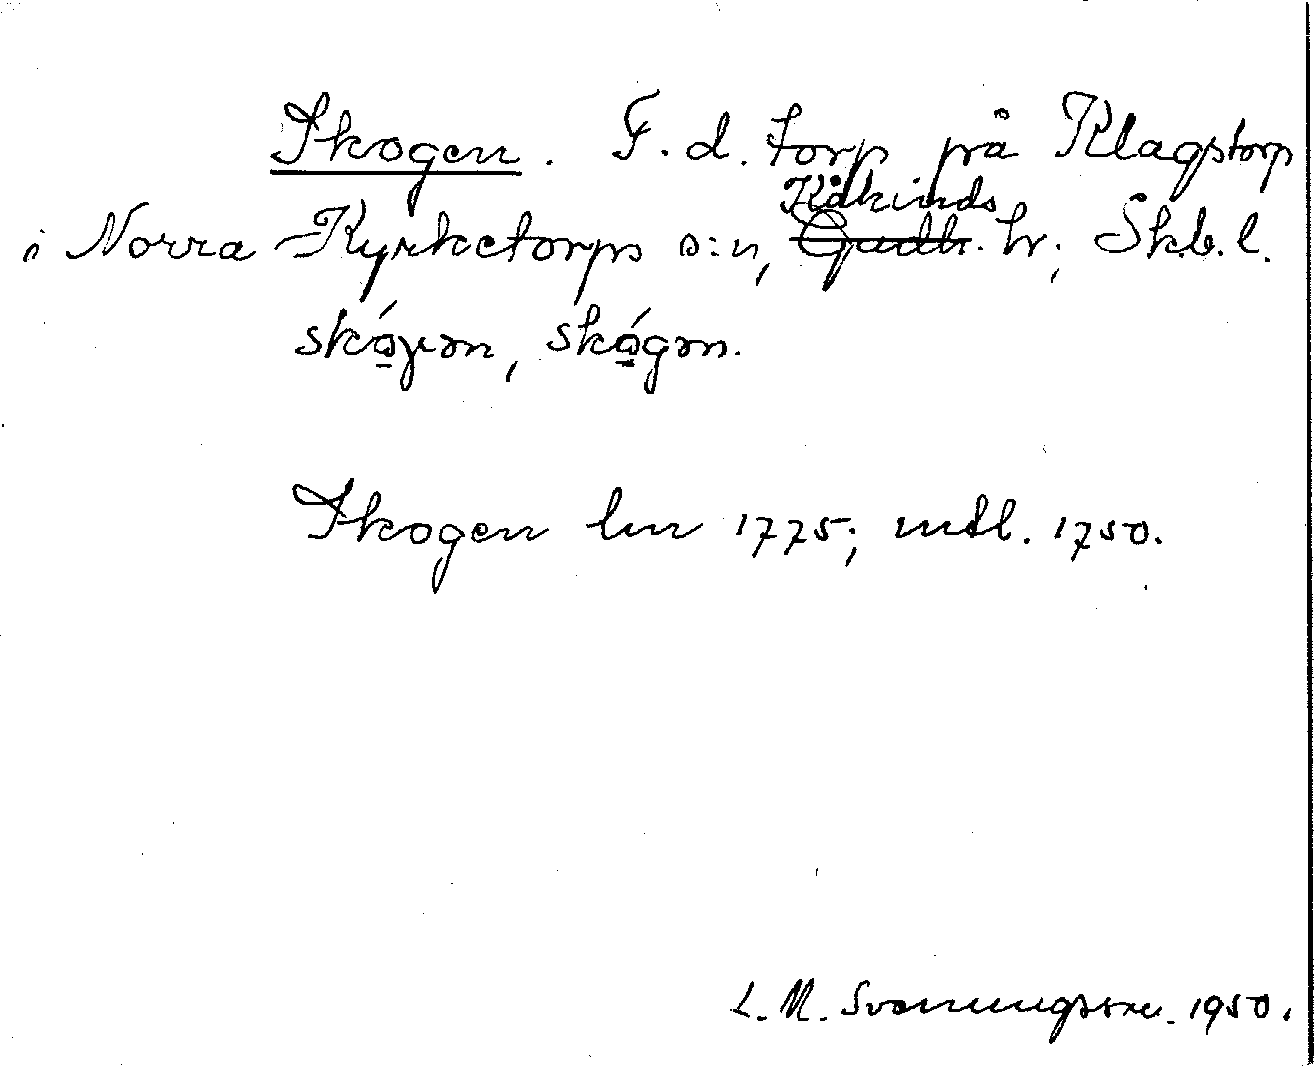 Skogen. F.d. torp på Klagstorp
i Norra Kyrketorps s:n, Kåkinds hr; Skb.l.
skó̱γən, skó̱gən.
Skogen lm 1775; mtl. 1750.
L. M. Svenungsson. 1950.